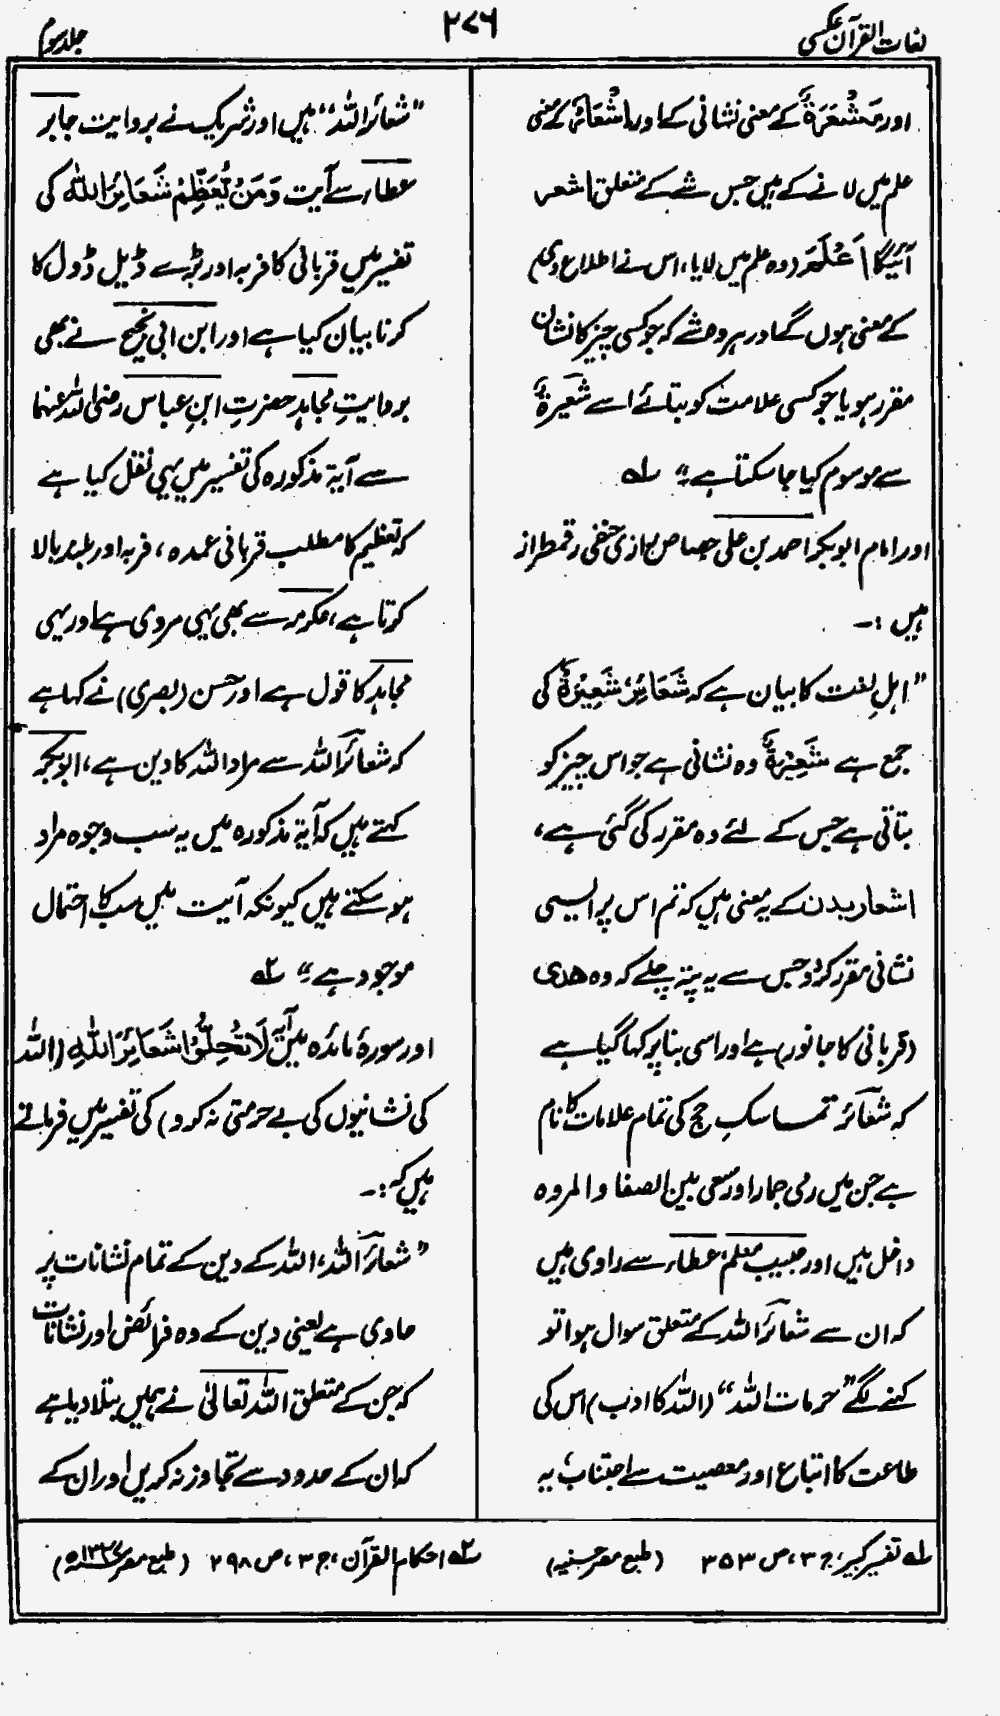 لغات القرآن عکسی
۲۷۶
جلد سوم
اور مَشْعَرَةٌ کے معنی نشانی کے اور اِشْعَارٌ کے معنی
علم میں لانے کے ہیں جس شے کے متعلق اشعر
آئیگا اَعْلَمَ (وہ علم میں لایا، اس نے اطلاع دی)
کے معنی ہوں گے اور ہر وہ شے کہ جو کسی چیز کا نشان
مقرر ہو یا جو کسی علامت کو بتائے اسے شَعِيْرَةٌ
سے موسوم کیا جا سکتا ہے"؎۱
اور امام ابو بکر احمد بن علی جصاص رازی حنفی رقمطراز
ہیں :۔
"اہلِ لغت کا بیان ہے کہ شَعَائِرُ، شَعِيْرَةٌ کی
جمع ہے شَعِيْرَةٌ وہ نشانی ہے جو اس چیز کو
بتاتی ہے جس کے لئے وہ مقرر کی گئی ہے،
اشعار بدن کے یہ معنی ہیں کہ تم اس پر ایسی
نشانی مقرر کر دو جس سے یہ پتہ چلے کہ وہ ھدی
(قربانی کا جانور) ہے اور اسی بنا پر کہا گیا ہے
کہ شعائر تمام مناسکِ حج کی تمام علامات کا نام
ہے جن میں رمی جمار اور سعی بین الصفا والمروہ
داخل ہیں اور حبیب معلم، عطاء سے راوی ہیں
کہ ان سے شعائر اللہ کے متعلق سوال ہوا تو
کہنے لگے "حرمات اللہ" (اللہ کا ادب) اس کی
طاعت کا اتباع اور معصیت سے اجتناب یہ
"شعائر اللہ" ہیں اور شریک نے بروایت جابر
عطاء سے آیت وَمَنْ يُّعَظِّمْ شَعَائِرَ اللهِ کی
تفسیر میں قربانی کا فربہ اور بڑے ڈیل ڈول کا
کرنا بیان کیا ہے اور ابن ابی نجیح نے بھی
بروایتِ مجاہد حضرتِ ابن عباس رضی اللہ عنہما
سے آیۃ مذکورہ کی تفسیر میں یہی نقل کیا ہے
کہ تعظیم کا مطلب قربانی عمدہ، فربہ اور بلند بالا
کرنا ہے، عکرمہ سے بھی یہی مروی ہے اور یہی
مجاہد کا قول ہے اور حسن (بصری) نے کہا ہے
کہ شعائر اللہ سے مراد اللہ کا دین ہے، ابو بکر
کہتے ہیں کہ آیۃ مذکورہ میں یہ سب وجوہ مراد
ہو سکتے ہیں کیونکہ آیت میں سب کا احتمال
موجود ہے"؎۲
اور سورۂ مائدہ میں آیہ لَا تُحِلُّوْا شَعَائِرَ اللهِ (اللہ
کی نشانیوں کی بے حرمتی نہ کرو) کی تفسیر میں فرماتے
ہیں کہ :۔
"شعائر اللہ، اللہ کے دین کے تمام نشانات پر
حاوی ہے یعنی دین کے وہ فرائض اور نشانات
کہ جن کے متعلق اللہ تعالیٰ نے ہمیں بتلا دیا ہے
کہ ان کے حدود سے تجاوز نہ کریں اور ان کے
؎۱ تفسیر کبیر، ج ۳، ص ۳۵۳ (طبع مصر حسنیہ)
؎۲ احکام القرآن، ج ۳، ص ۲۹۸ (طبع مصر سنہ ۱۳۴۷ھ)